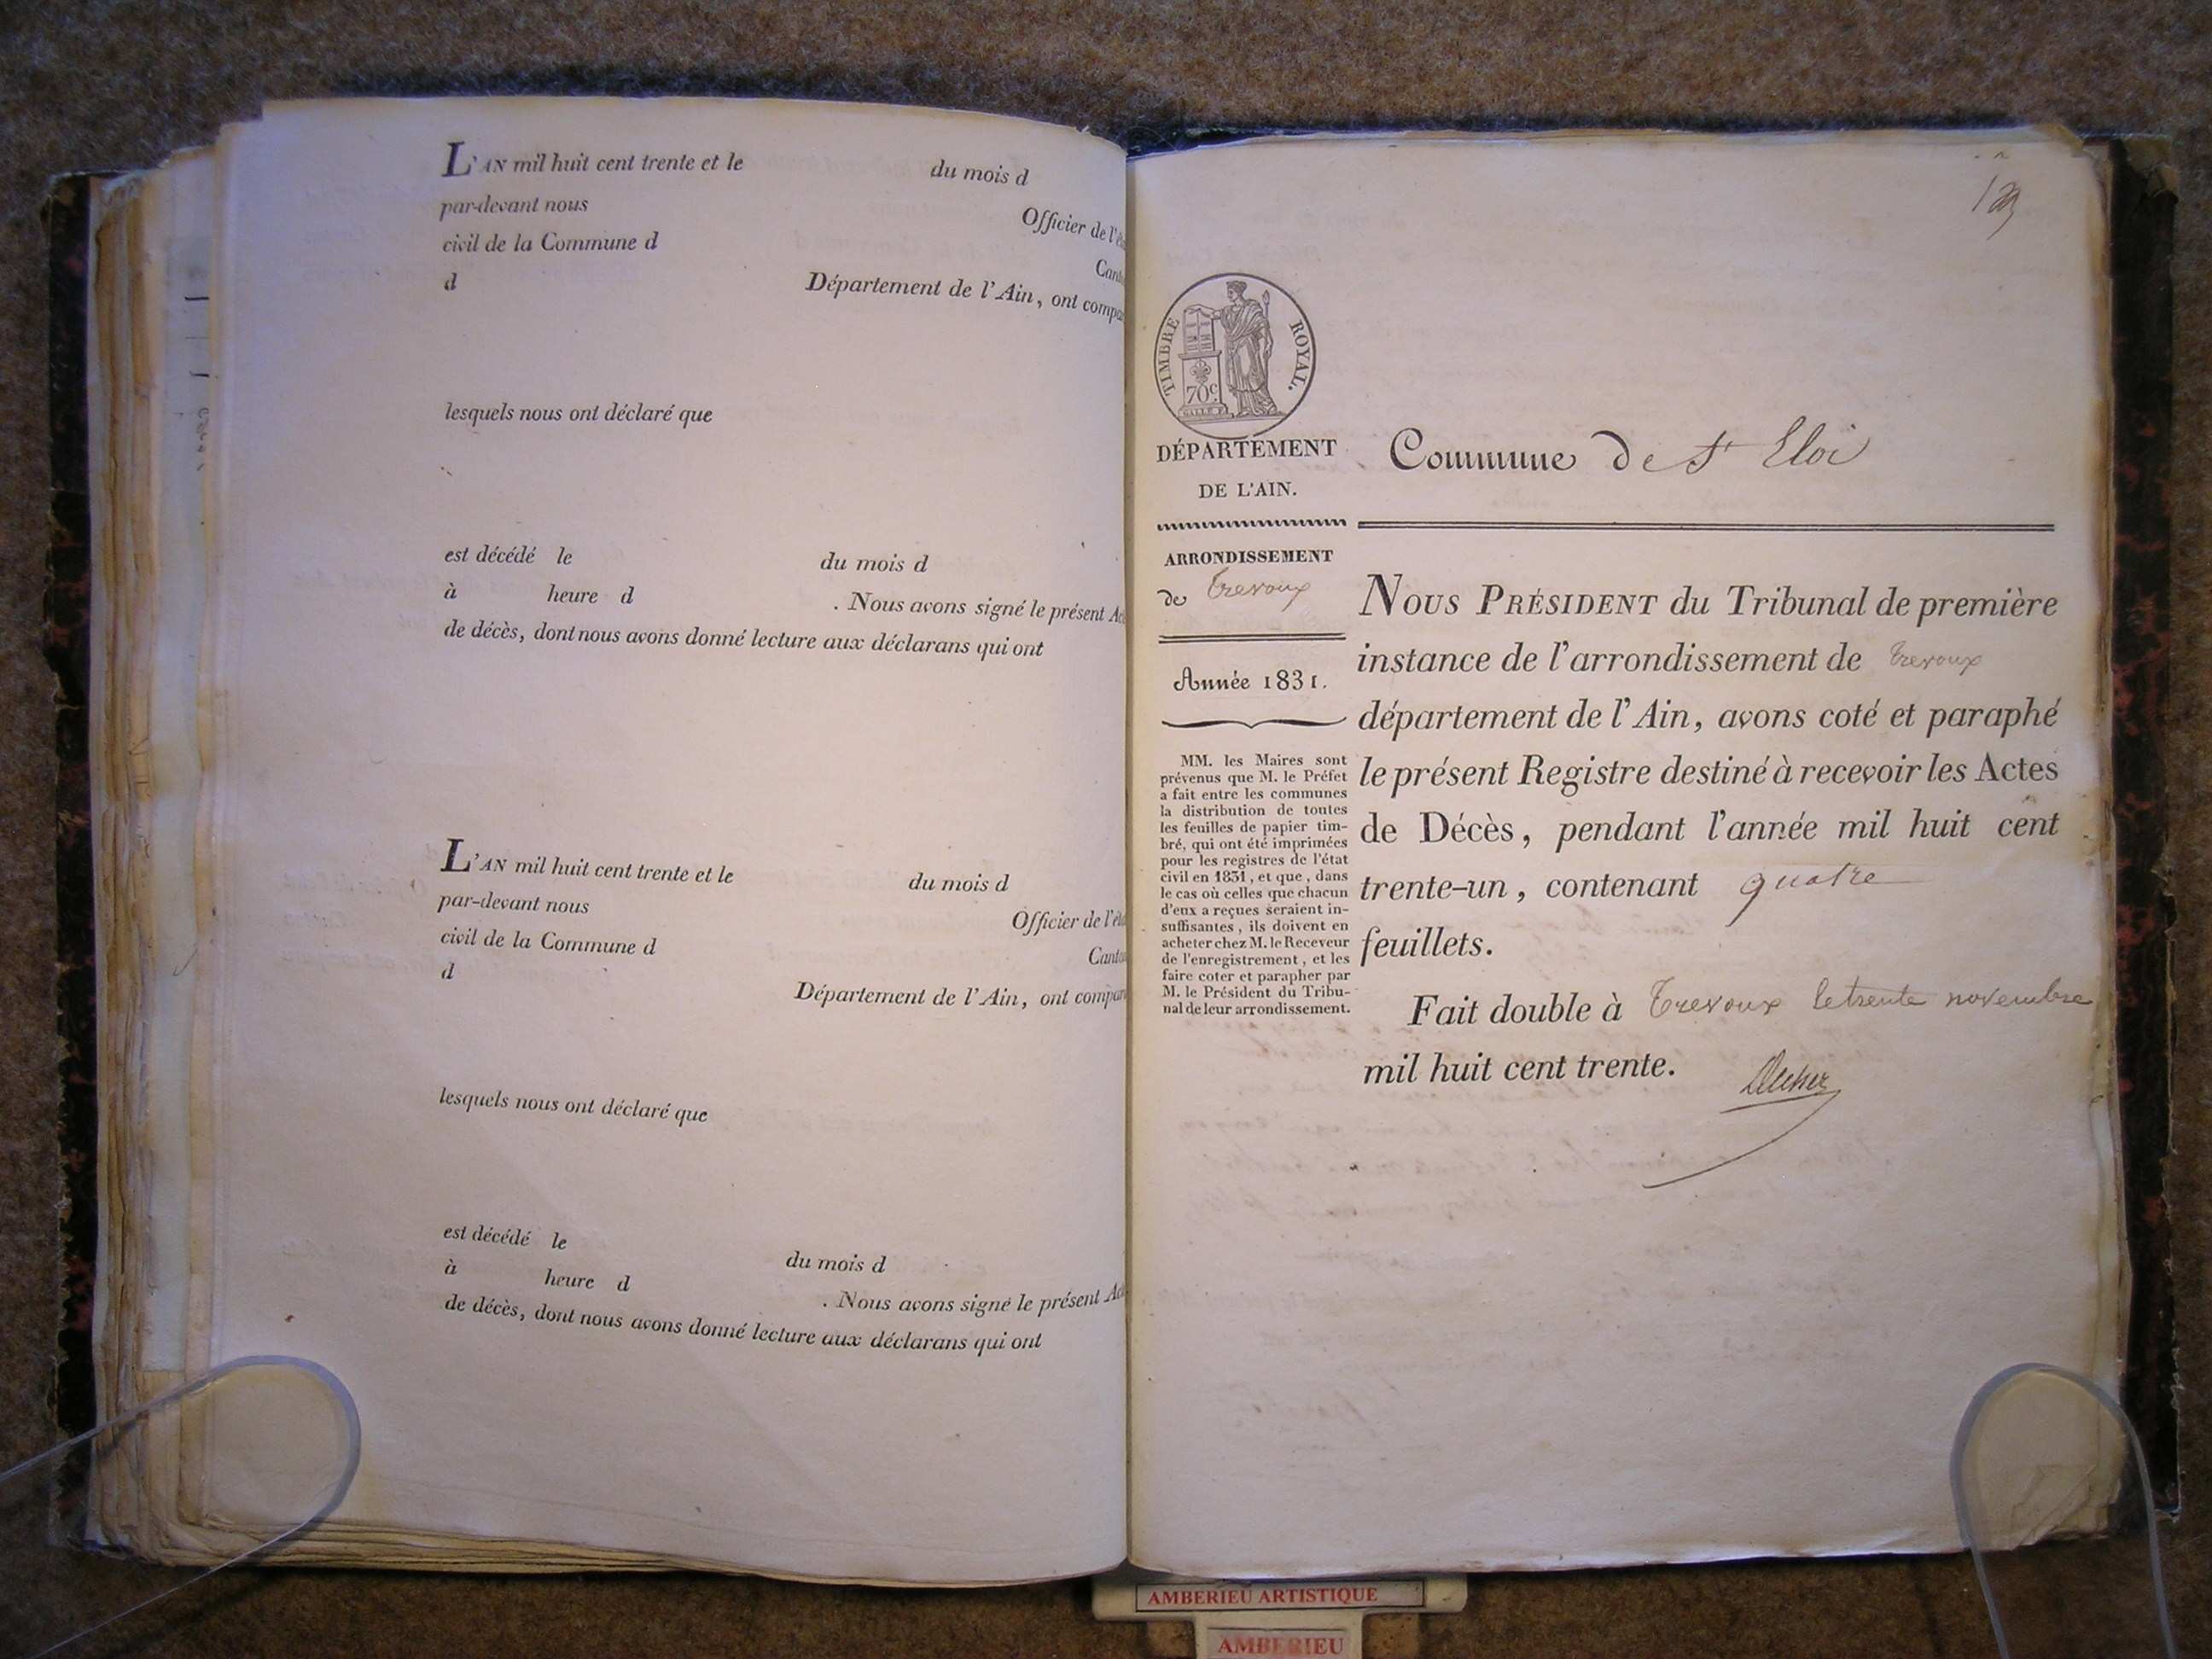 L'AN mil huit cent trente et le du mois d
par-devant nous Officier de l'é
civil de la Commune d Cant
d Département de l'Ain, ont compa
lesquels nous ont déclaré que
est décédé le du mois d
à heure d . Nous avons signé le présent Ac
de décès, dont nous avons donné lecture aux déclarans qui ont
L'AN mil huit cent trente et le du mois d
par-devant nous Officier de l'ét
civil de la Commune d Canto
d Département de l'Ain, ont compar
lesquels nous ont déclaré que
est décédé le du mois d
à heure d . Nous avons signé le présent Act
de décès, dont nous avons donné lecture aux déclarans qui ont
TIMBRE ROYAL.
70c
DÉPARTEMENT
DE L'AIN.
Commune de St Eloi
ARRONDISSEMENT
de Trevoux
Année 1831.
MM. les Maires sont
prévenus que M. le Préfet
a fait entre les communes
la distribution de toutes
les feuilles de papier tim-
bré, qui ont été imprimées
pour les registres de l'état
civil en 1831, et que, dans
le cas où celles que chacun
d'eux a reçues seraient in-
suffisantes, ils doivent en
acheter chez M. le Receveur
de l'enregistrement, et les
faire coter et parapher par
M. le Président du Tribu-
nal de leur arrondissement.
NOUS PRÉSIDENT du Tribunal de première
instance de l'arrondissement de Trevoux
département de l'Ain, avons coté et paraphé
le présent Registre destiné à recevoir les Actes
de Décès, pendant l'année mil huit cent
trente-un, contenant quatre
feuillets.
Fait double à Trevoux le trente novembre
mil huit cent trente.
AMBERIEU ARTISTIQUE
AMBERIEU